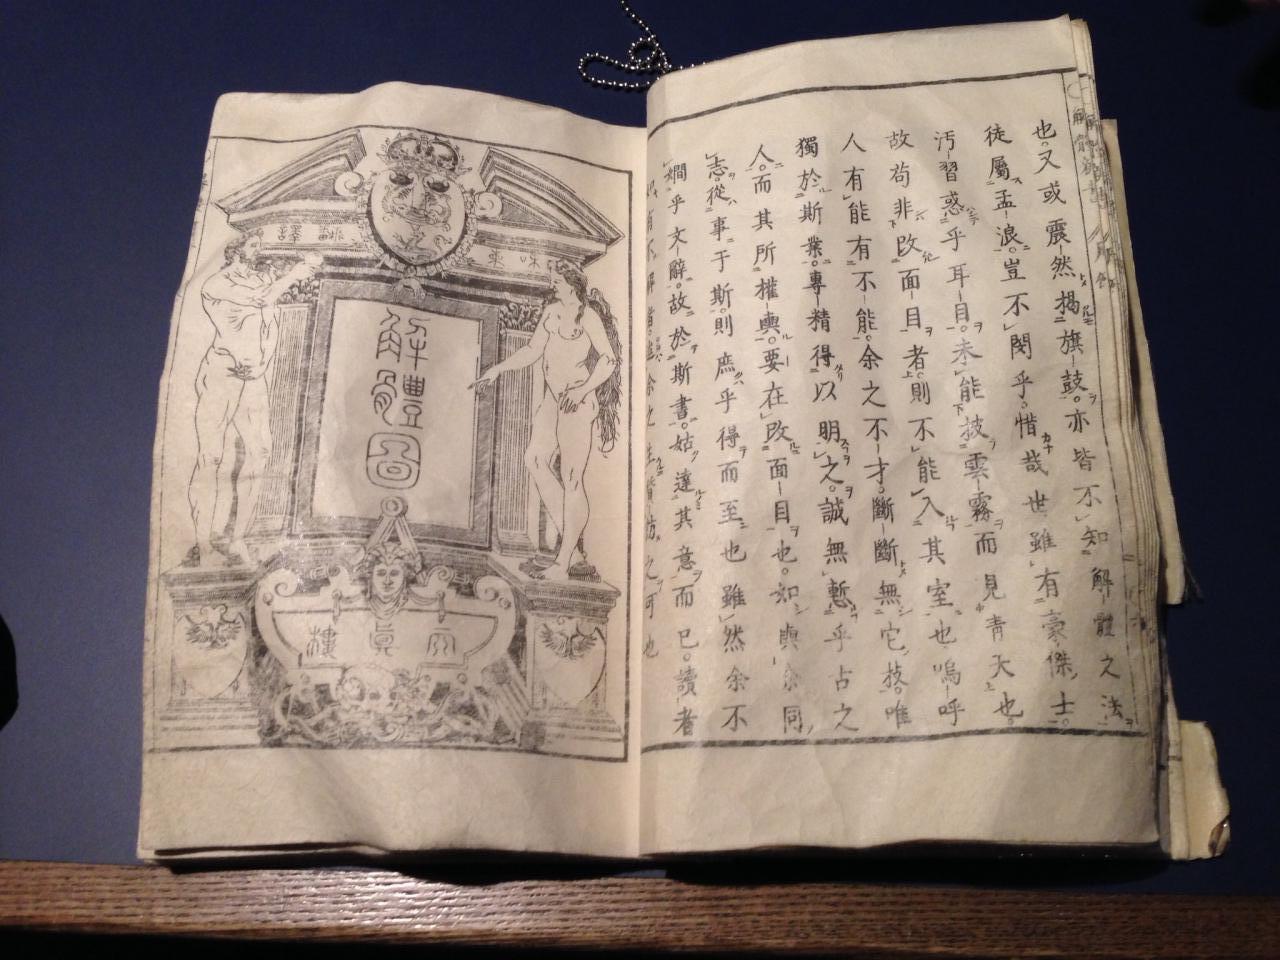 也。又或震然揭旗鼓。亦皆不知解體之法
徒屬孟浪。豈不閔乎。惜哉世雖有豪傑士。
汚習惑乎耳目。未能披雲霧而見青天也。
故苟非改面目者。則不能入其室也嗚呼
人有能有不能。余之不才。斷斷無它技。唯
獨於斯業。專精得以明之。誠無暫乎占之
人。而其所權輿。要在改面目也。如與余同
志。從事于斯。則庶乎得而至也雖然余不
嫺乎文辭。故於斯書。姑達其意而已。讀者
解體圖